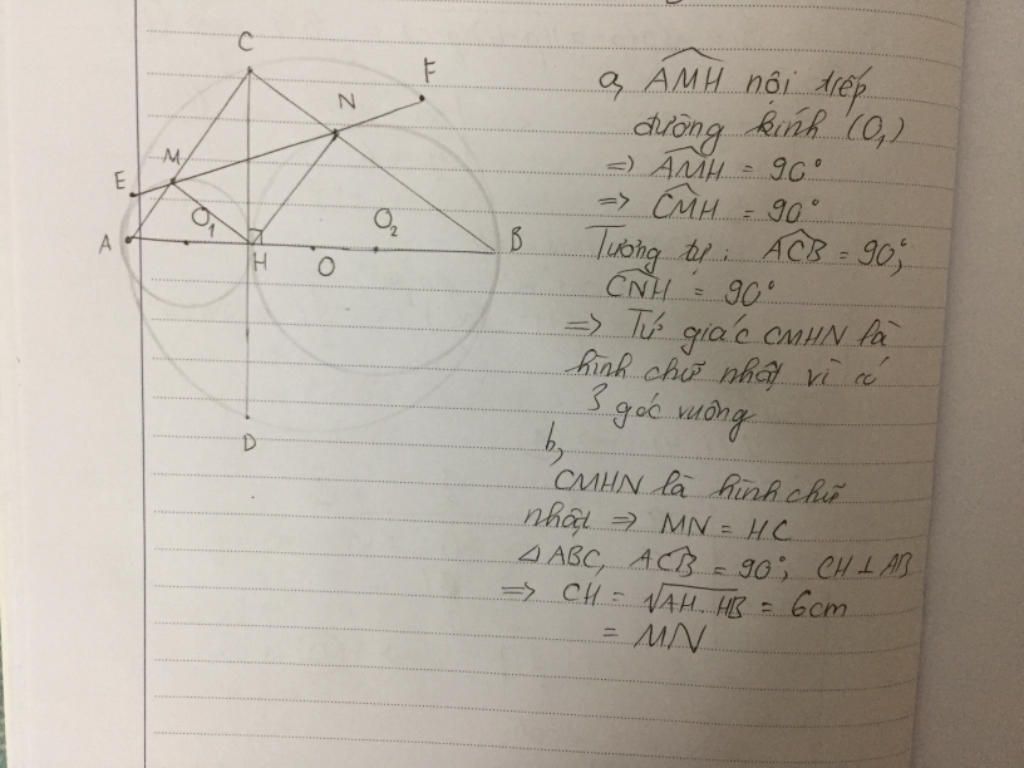 C
F
N
M
E
O₁
O₂
A
B
H
O
D
a, AMH nội tiếp
đường kính (O₁)
=> AMH = 90°
=> CMH = 90°
Tương tự: ACB = 90°,
CNH = 90°
=> Tứ giác CMHN là
hình chữ nhật vì có
3 góc vuông
b,
CMHN là hình chữ
nhật => MN = HC
△ABC, ACB = 90°, CH ⊥ AB
=> CH = √AH.HB = 6cm
= MN